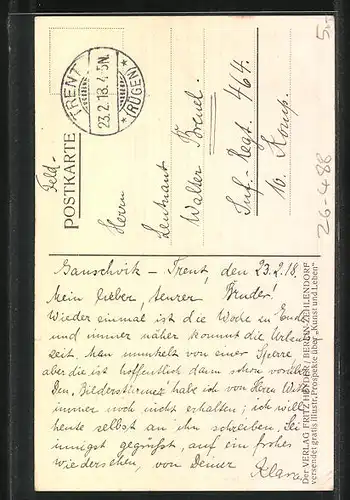 Feld-
POSTKARTE
TRENT
23.2.18.4-5N.
* (RÜGEN) *
Herrn
Leutnant
Walter
Inf.-Regt. 464.
10. Komp.
5.-
26-488
Ganschvitz – Trent, den 23.2.18.
Mein lieber, teurer Bruder!
Wieder einmal ist die Woche zu Ende
und immer näher kommt die Urlaubs-
zeit. Man munkelt von einer Sperre
aber die ist hoffentlich dann schon vorüber.
Den „Bilderstürmer“ habe ich von Herrn
immer noch nicht erhalten; ich will
heute selbst an ihn schreiben. Sei
innigst gegrüsst, auf ein frohes
Wiedersehen, von Deiner
Klara
Der VERLAG FRITZ HEYDER, BERLIN-ZEHLENDORF
versendet gratis illustr. Prospekte über „Kunst und Leben“